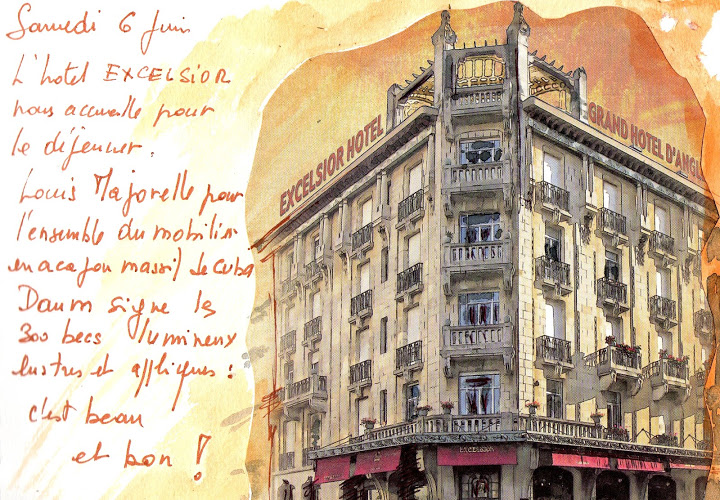 Samedi 6 Juin
L'hotel EXCELSIOR
nous accueille pour
le déjeuner.
Louis Majorelle pour
l'ensemble du mobilier
en acajou massif de Cuba
Daum signe les
300 becs lumineux
lustres et appliques :
c'est beau
et bon !
EXCELSIOR HOTEL
GRAND HOTEL D'ANGL
EXCELSIOR